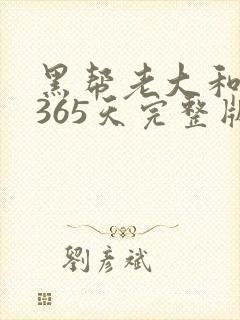 黑帮老大和
365天完整版
劉彥斌